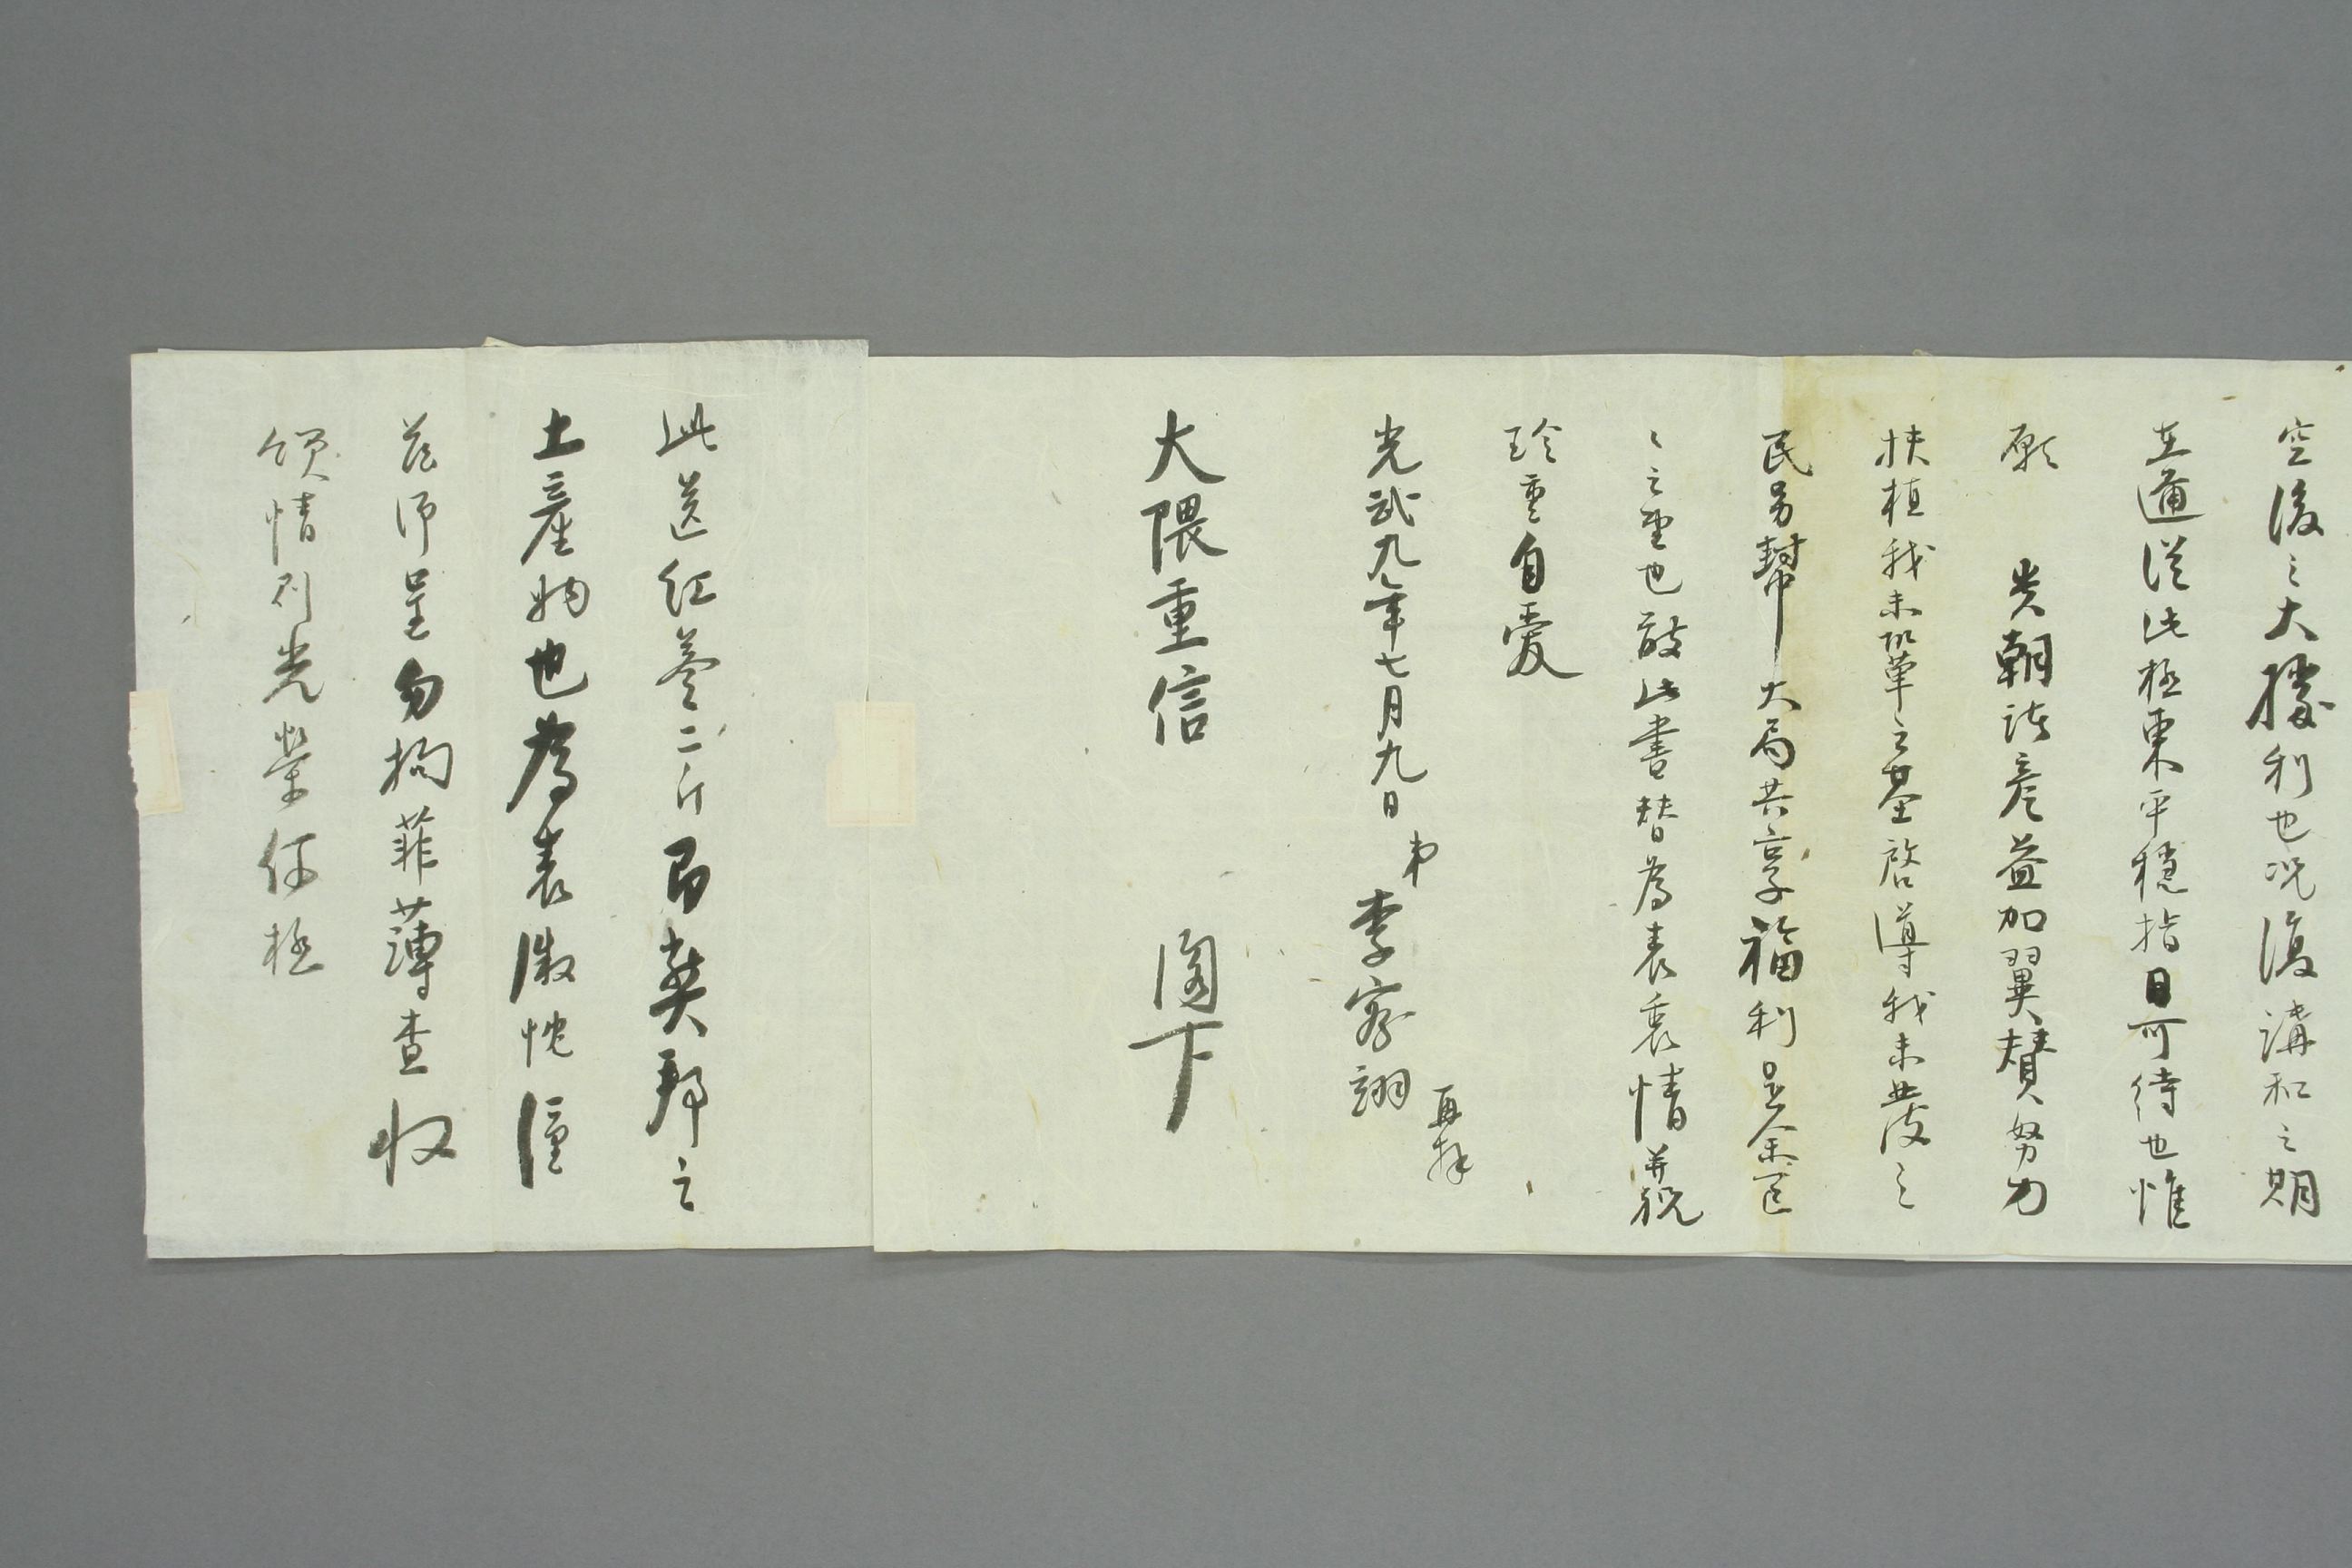 空後之大捷利也況復講和之期
在邇從此極東平穩指日可待也惟
願 貴朝諸彦益加翼贊努力
扶植我未鞏之基啓導我未發之
民另幇大局共享福利是余區
〻之望也敢此書替爲表衷情并祝
珍重自愛
光武九年七月九日 弟 李容翊 再拜
大隈重信 閣下
此送紅蔘二斤即獘邦之
土産物也爲表微忱僅
茲帀呈勿拘菲薄查收
領情則光榮何極